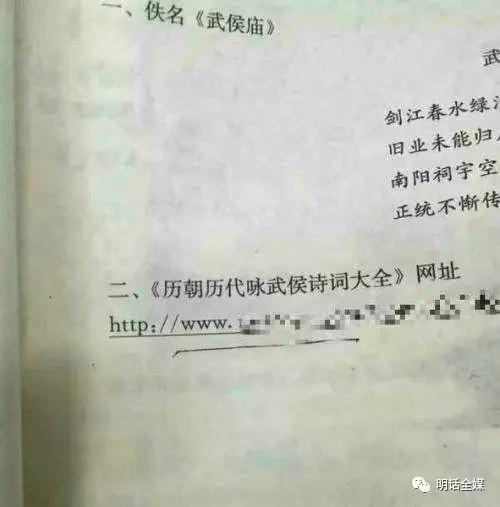 一、佚名《武侯庙》
武
剑江春水绿
旧业未能归
南阳祠宇空
正统不惭传
二、《历朝历代咏武侯诗词大全》网址
http://www.
明话全媒